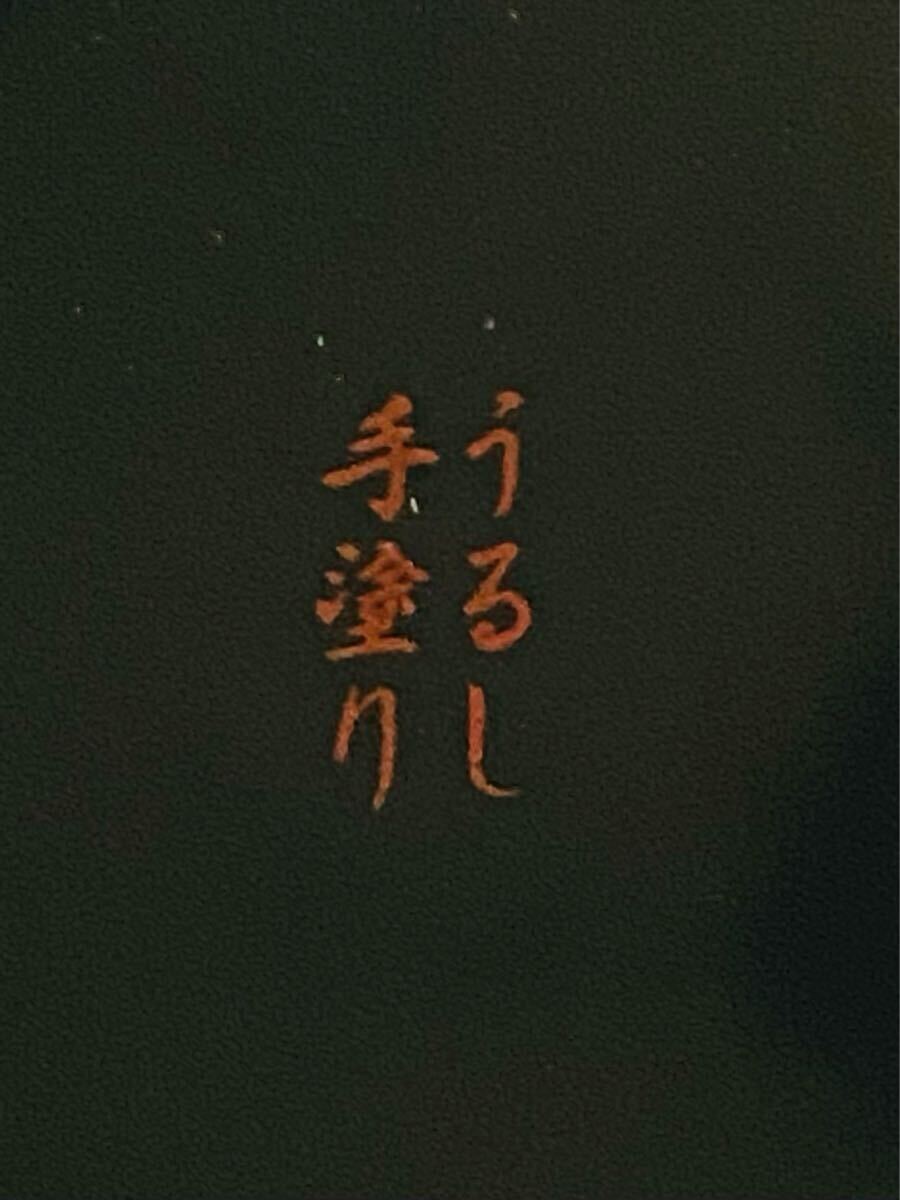 うるし
手塗り